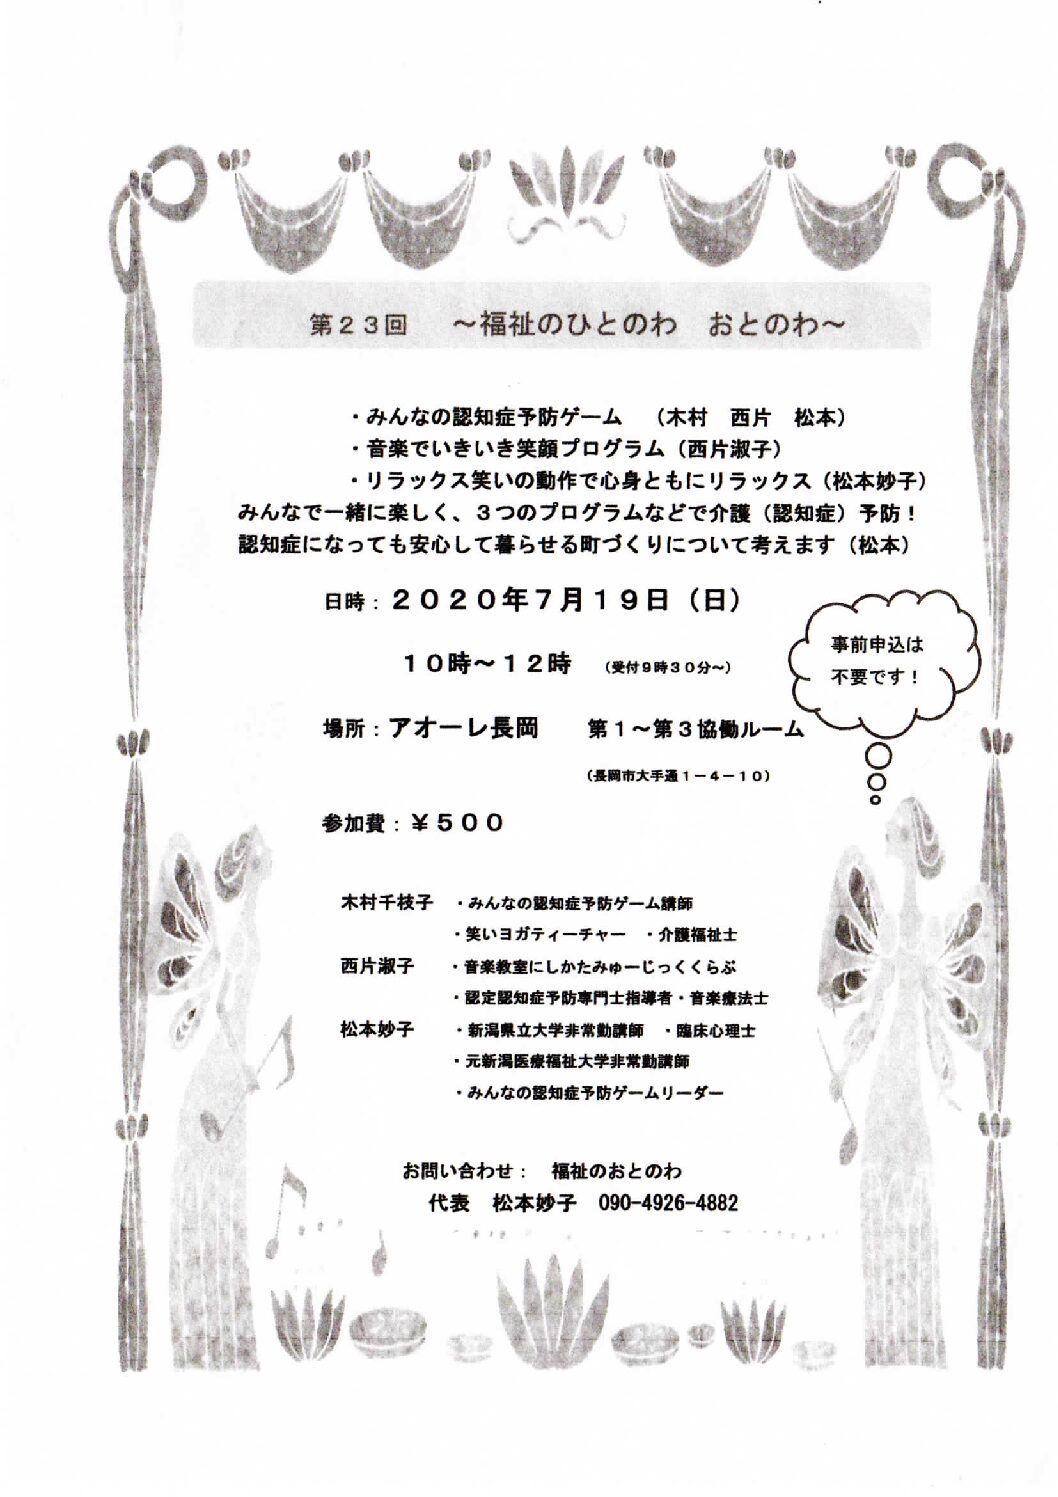 第２３回　～福祉のひとのわ　おとのわ～
・みんなの認知症予防ゲーム　（木村　西片　松本）
・音楽でいきいき笑顔プログラム（西片淑子）
・リラックス笑いの動作で心身ともにリラックス（松本妙子）
みんなで一緒に楽しく、３つのプログラムなどで介護（認知症）予防！
認知症になっても安心して暮らせる町づくりについて考えます（松本）
日時：２０２０年７月１９日（日）
１０時～１２時　（受付９時３０分～）
事前申込は
不要です！
場所：アオーレ長岡　第１～第３協働ルーム
（長岡市大手通１－４－１０）
参加費：￥５００
木村千枝子　・みんなの認知症予防ゲーム講師
・笑いヨガティーチャー　・介護福祉士
西片淑子　・音楽教室にしかたみゅーじっくくらぶ
・認定認知症予防専門士指導者・音楽療法士
松本妙子　・新潟県立大学非常勤講師　・臨床心理士
・元新潟医療福祉大学非常勤講師
・みんなの認知症予防ゲームリーダー
お問い合わせ：　福祉のおとのわ
代表　松本妙子　090-4926-4882